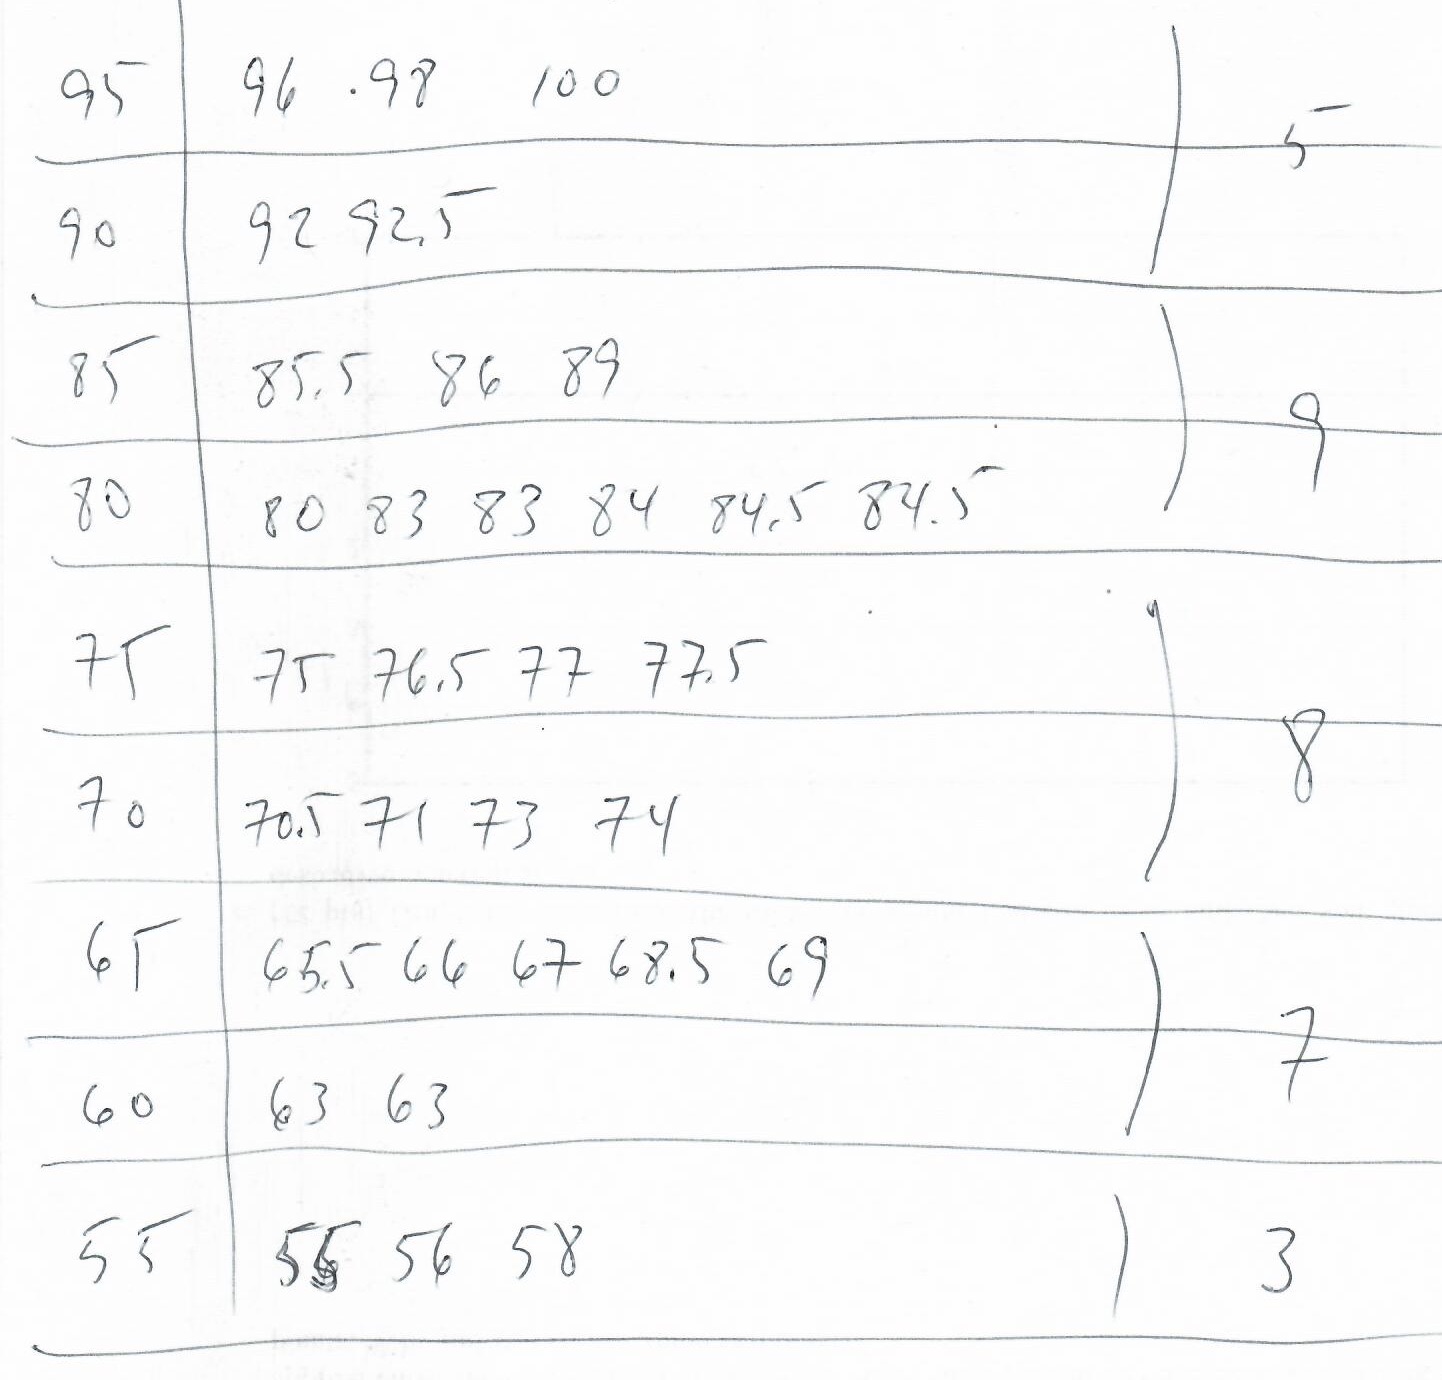 95 96 .98 100
5
90 92 92.5
85 85.5 86 89
9
80 80 83 83 84 84.5 84.5
75 75 76.5 77 77.5
8
70 70.5 71 73 74
65 65.5 66 67 68.5 69
7
60 63 63
55 56 58 3